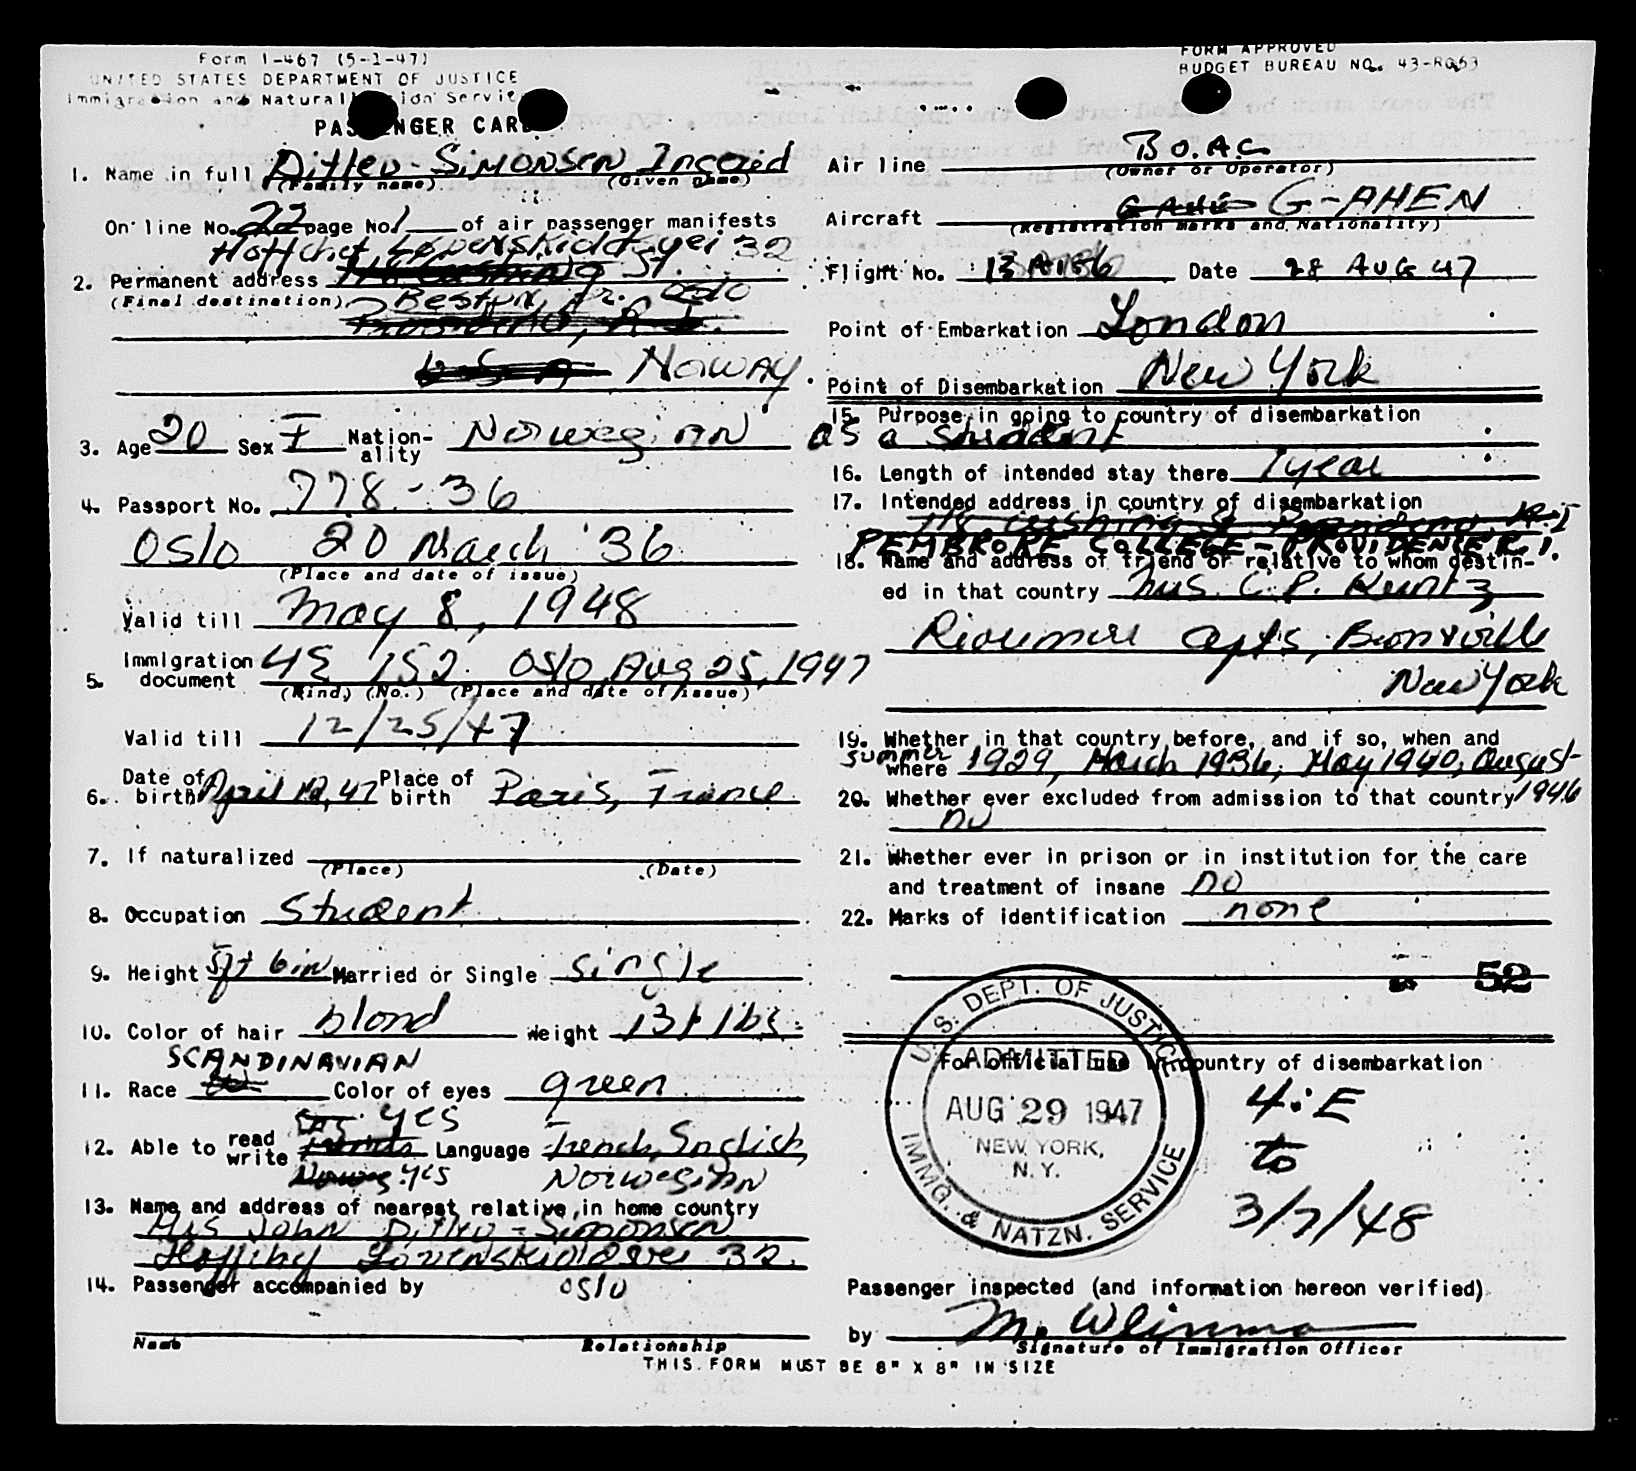 Form I-467 (5-1-47)
UNITED STATES DEPARTMENT OF JUSTICE
Immigration and Naturalization Service
PASSENGER CARD
FORM APPROVED
BUDGET BUREAU NO. 43-R063
1. Name in full Ditlev-Simonsen Ingerid
(Family name) (Given name)
On line No. 22 page No. 1 of air passenger manifests
32
2. Permanent address St.
(Final destination) Oslo
Noway
3. Age 20 Sex F Nation-ality Norwegian
4. Passport No. 778-36
Oslo 20 March '36
(Place and date of issue)
Valid till May 8, 1948
5. Immigration document 4E 152 Oslo, Aug 25, 1947
(Kind) (No.) (Place and date of issue)
Valid till 12/25/47
6. Date of birth April 47 Place of birth Paris, France
7. If naturalized
(Place) (Date)
8. Occupation Student
9. Height 5ft 6in Married or Single single
10. Color of hair blond Weight lbs.
SCANDINAVIAN
11. Race Color of eyes green
yes
12. Able to read write Language French, English,
yes Norwegian
13. Name and address of nearest relative in home country
Mrs John Ditlev-Simonsen
32.
14. Passenger accompanied by Oslo
Name Relationship
THIS FORM MUST BE 8" X 8" IN SIZE
Air line B.O.A.C
(Owner or Operator)
Aircraft G-AHEN
(Registration marks and Nationality)
Flight No. Date 28 AUG 47
Point of Embarkation London
Point of Disembarkation New York
15. Purpose in going to country of disembarkation
as a student
16. Length of intended stay there 1 year
17. Intended address in country of disembarkation
PEMBROKE COLLEGE - PROVIDENCE R.I.
18. Name and address of friend or relative to whom destin-
ed in that country Mrs. C.P. Kuntz
Apts, Bronxville
New York
19. Whether in that country before, and if so, when and
where summer 1929, March 1936, May 1940, August
1946
20. Whether ever excluded from admission to that country
no
21. Whether ever in prison or in institution for the care
and treatment of insane no
22. Marks of identification none
52
For official use in country of disembarkation
U.S. DEPT. OF JUSTICE
ADMITTED
AUG 29 1947
NEW YORK,
N.Y.
IMMG. & NATZN. SERVICE
4:E
to
3/7/48
Passenger inspected (and information hereon verified)
by M.
Signature of Immigration Officer